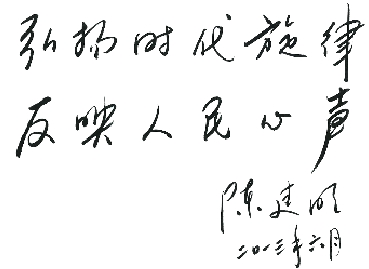 弘扬时代旋律
反映人民心声
陈建明
二〇一三年六月